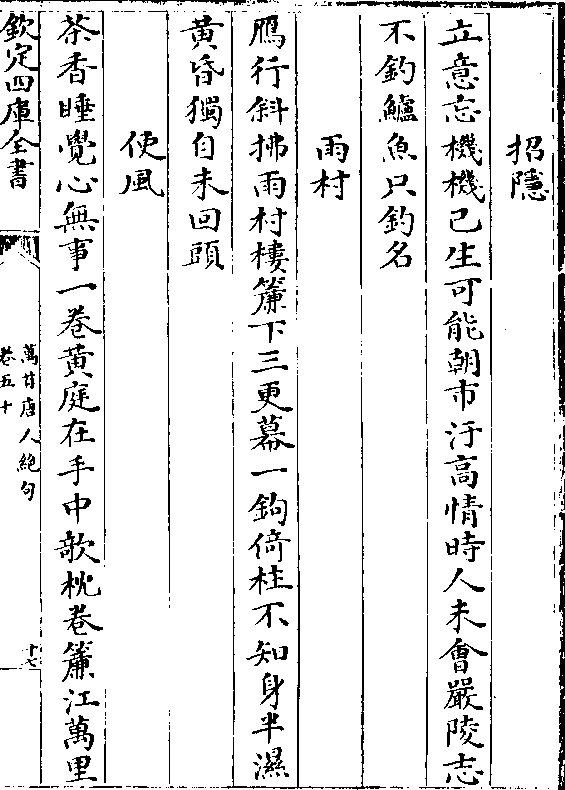 招隱
立意忘機機已生可能朝市汙高情時人未會嚴陵志
不釣鱸魚只釣名
雨村
鴈行斜拂雨村樓簾下三更幕一鉤倚柱不知身半濕
黄昏獨自未回頭
使風
茶香睡覺心無事一卷黄庭在手中欹枕卷簾江萬里
欽定四庫全書
萬首唐人絶句
卷五十
十七